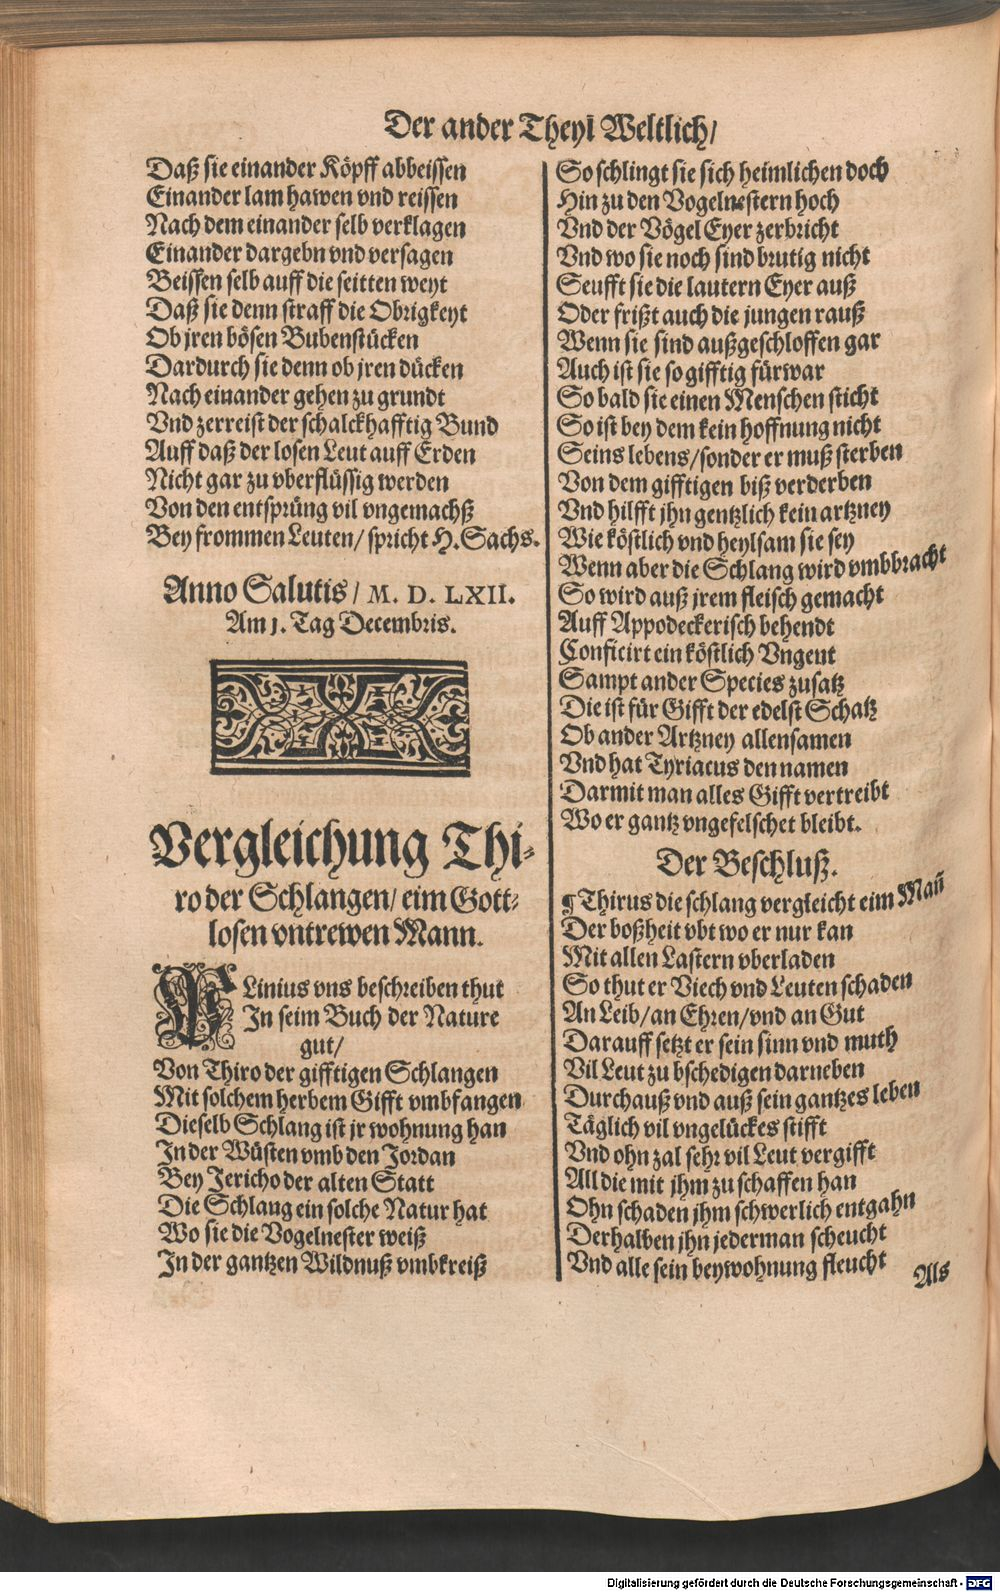 Der ander Theyl Weltlich/
Daß sie einander Köpff abbeissen
Einander lam hawen vnd reissen
Nach dem einander selb verklagen
Einander dargebn vnd versagen
Beissen selb auff die seitten weyt
Daß sie denn straff die Obrigkeyt
Ob jren bösen Bubenstücken
Dardurch sie denn ob jren dücken
Nach einander gehen zu grundt
Vnd zerreist der schalckhafftig Bund
Auff daß der losen Leut auff Erden
Nicht gar zu vberflüssig werden
Von den entsprüng vil vngemachß
Bey frommen Leuten/ spricht H. Sachs.
Anno Salutis/ M. D. LXII.
Am 1. Tag Decembris.
Vergleichung Thi-
ro der Schlangen/ eim Gott-
losen vntrewen Mann.
PLinius vns beschreiben thut
In seim Buch der Nature
gut/
Von Thiro der gifftigen Schlangen
Mit solchem herbem Gifft vmbfangen
Dieselb Schlang ist jr wohnung han
In der Wüsten vmb den Jordan
Bey Jericho der alten Statt
Die Schlang ein solche Natur hat
Wo sie die Vogelnester weiß
In der gantzen Wildnuß vmbkreiß
So schlingt sie sich heimlichen doch
Hin zu den Vogelnestern hoch
Vnd der Vögel Eyer zerbricht
Vnd wo sie noch sind brutig nicht
Seufft sie die lautern Eyer auß
Oder frißt auch die jungen rauß
Wenn sie sind außgeschloffen gar
Auch ist sie so gifftig fürwar
So bald sie einen Menschen sticht
So ist bey dem kein hoffnung nicht
Seins lebens/ sonder er muß sterben
Von dem gifftigen biß verderben
Vnd hilfft jhn gentzlich kein artzney
Wie köstlich vnd heylsam sie sey
Wenn aber die Schlang wird vmbbracht
So wird auß jrem fleisch gemacht
Auff Appodeckerisch behendt
Conficirt ein köstlich Vngent
Sampt ander Species zusatz
Die ist für Gifft der edelst Schatz
Ob ander Artzney allensamen
Vnd hat Tyriacus den namen
Darmit man alles Gifft vertreibt
Wo er gantz vngefelschet bleibt.
Der Beschluß.
¶ Thirus die schlang vergleicht eim Mañ
Der boßheit vbt wo er nur kan
Mit allen Lastern vberladen
So thut er Viech vnd Leuten schaden
An Leib/ an Ehren/ vnd an Gut
Darauff setzt er sein sinn vnd muth
Vil Leut zu bschedigen darneben
Durchauß vnd auß sein gantzes leben
Täglich vil vngelückes stifft
Vnd ohn zal sehr vil Leut vergifft
All die mit jhm zu schaffen han
Ohn schaden jhm schwerlich entgahn
Derhalben jhn jederman scheucht
Vnd alle sein beywohnung fleucht
Als
Digitalisierung gefördert durch die Deutsche Forschungsgemeinschaft - DFG